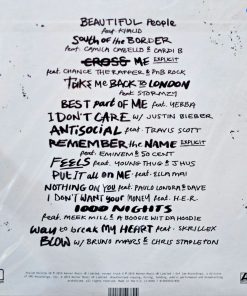 BEAUTIFUL People
feat. KHALID
South of the BORDER
feat. CAMILA CABELLO & CARDI B
CROSS ME EXPLICIT
feat. CHANCE THE RAPPER & PnB ROCK
TAKE ME BACK TO LONDON
feat. STORMZY
BEST part OF ME feat. YEBBA
I DON'T CARE w/ JUSTIN BIEBER
ANTISOCIAL feat. TRAVIS SCOTT
REMEMBER the NAME EXPLICIT
feat. EMINEM & 50 CENT
FEELS feat. YOUNG THUG & J HUS
PUT IT all ON ME feat. ELLA MAI
NOTHING ON YOU feat. PAULO LONDRA & DAVE
I DON'T WANT your MONEY feat. H.E.R.
1000 NIGHTS
feat. MEEK MILL & A BOOGIE WIT DA HOODIE
Way to break MY HEART feat. SKRILLEX
BLOW w/ BRUNO MARS & CHRIS STAPLETON